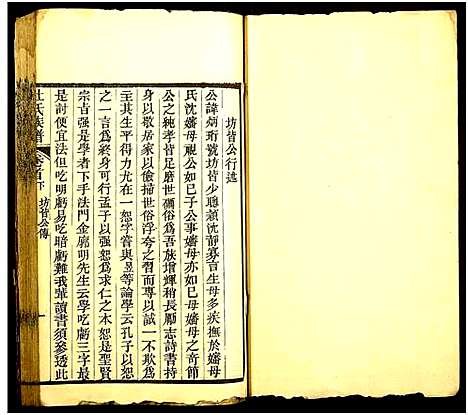 坊皆公行述
公諱炳珩號坊皆少聰頴沈靜寡言生母多疾撫於嬸母
氏沈嬸母視公如己子公事嬸母亦如己母嬸母之奇節
公之純孝皆足磨世礪俗爲吾族增輝稍長勵志詩書持
身以敬居家以儉掃世俗浮夸之習而專以誠一不欺爲
主其生平得力尤在一恕字嘗與昱等論學云孔子以恕
之一言爲終身可行孟子以强恕爲求仁之本恕是聖賢
宗旨强是學者下手法門金廌明先生云學吃虧三字最
是討便宜法但吃明虧易吃暗虧難我輩讀書須參透此
杜氏族譜
卷首下
坊皆公傳
一